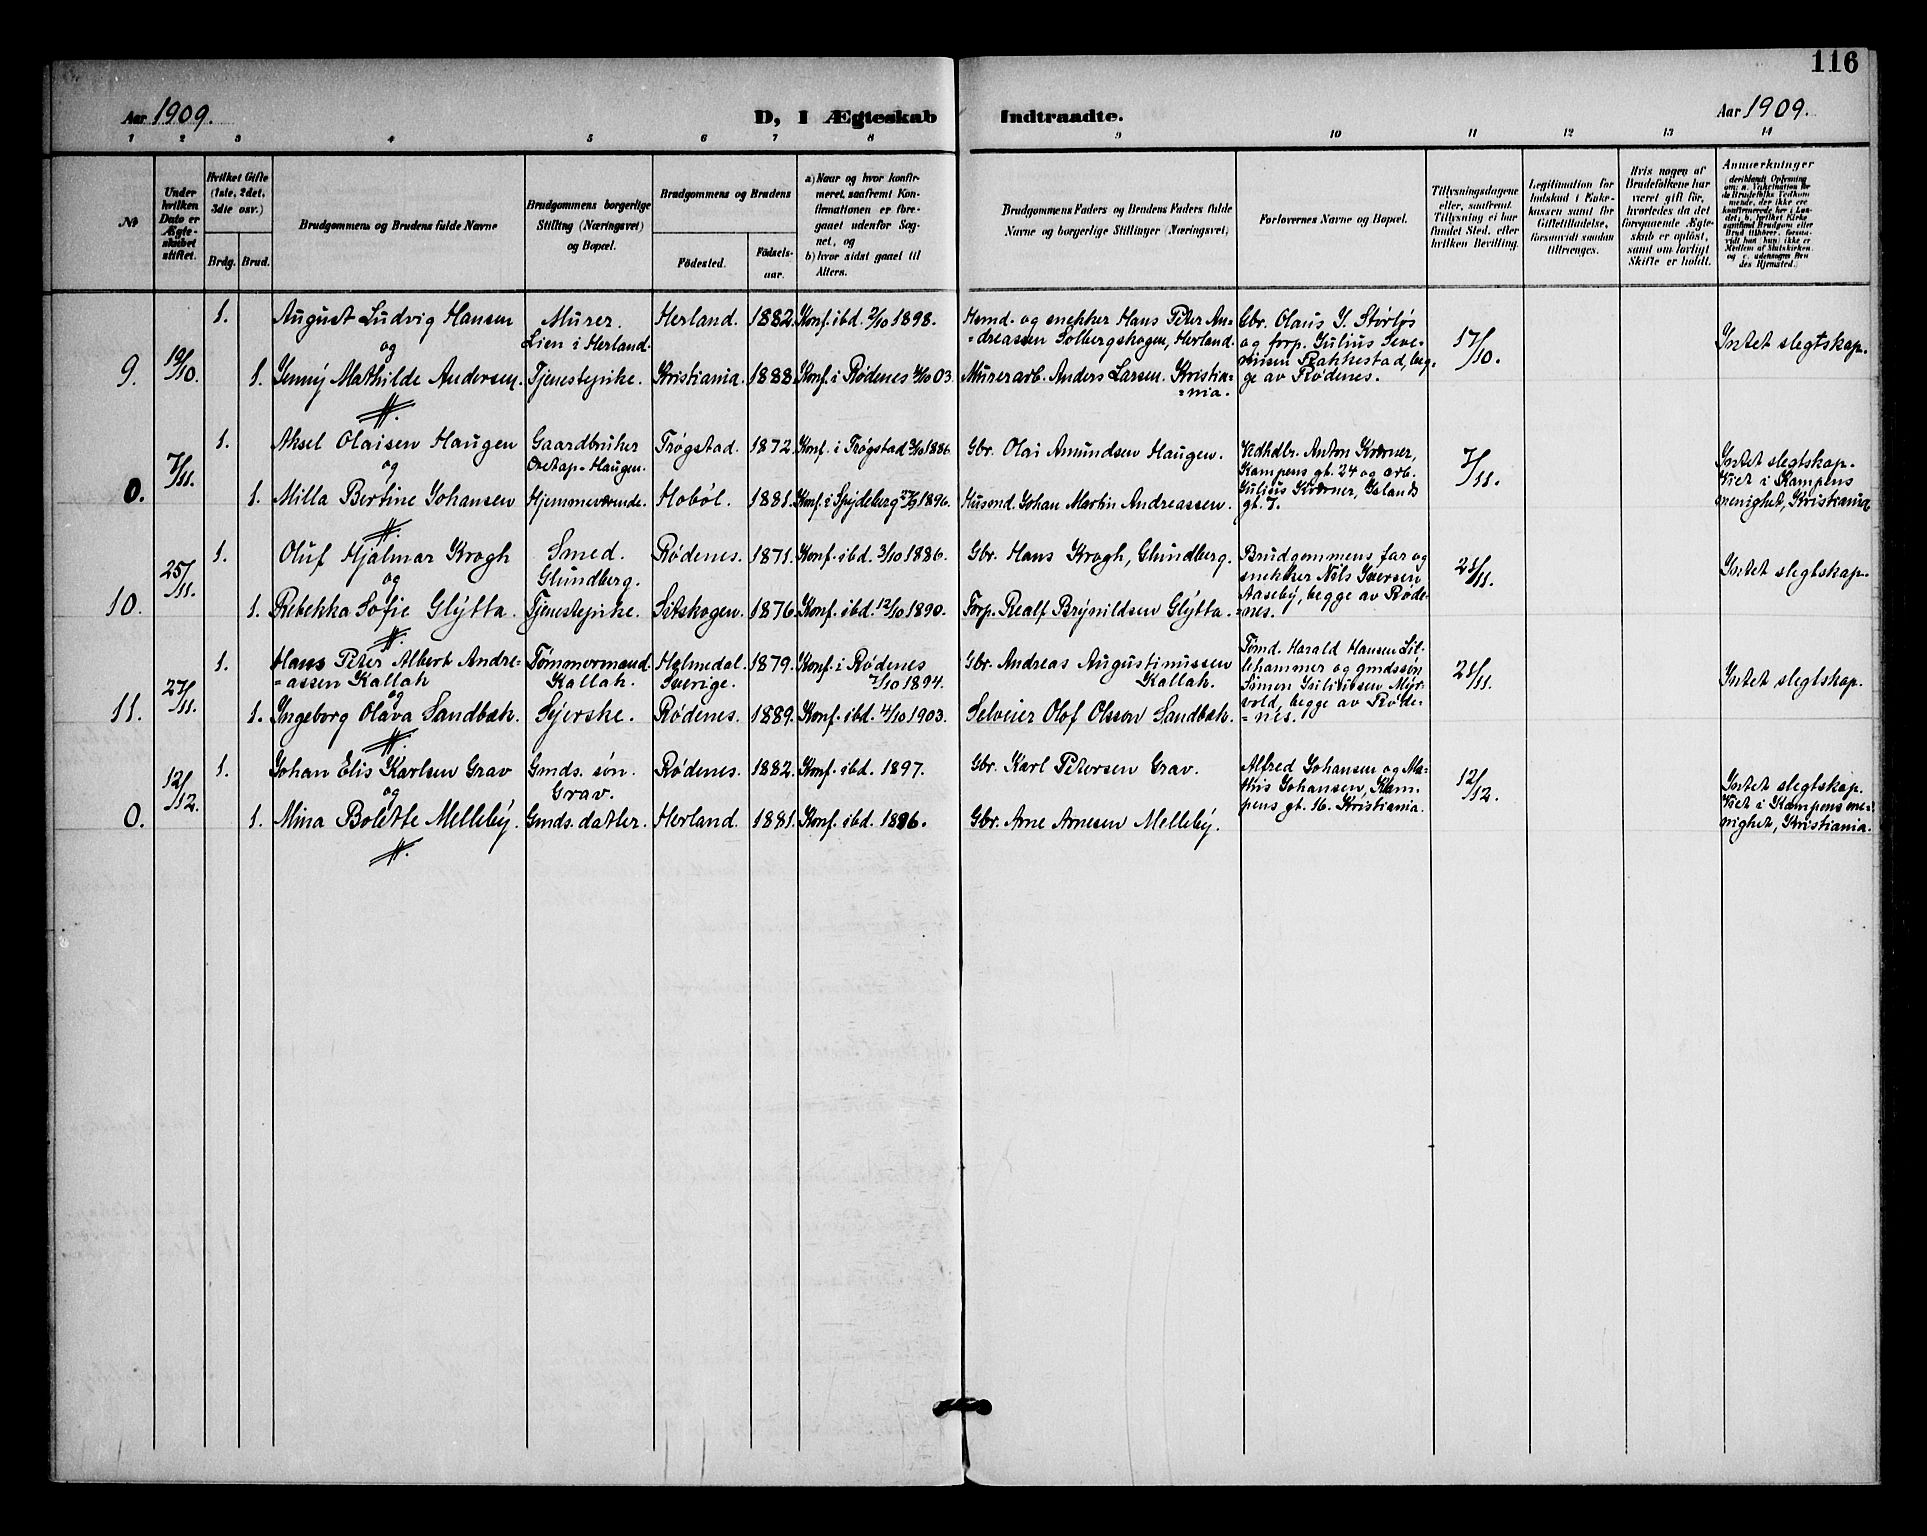 116
Aar 1909.
D, I Ægteskab Indtraadte.
Aar 1909.
1 2 3 4 5 6 7 8 9 10 11 12 13 14
№
Under hvilken Dato er Ægteskabet stiftet.
Hvilket Gifte (1ste, 2det, 3die osv.)
Brdg. Brud.
Brudgommens og Brudens fulde Navne
Brudgommens borgerlige Stilling (Næringsvei) og Bopæl.
Brudgommens og Brudens
Födested.
Födselsaar.
a) Naar og hvor konfirmeret, saafremt Konfirmationen er foregaaet udenfor Sognet, og
b) hvor sidst gaaet til Alters.
Brudgommens Faders og Brudens Faders fulde Navne og borgerlige Stillinger (Næringsvei)
Forlovernes Navne og Bopæl.
Tillysningsdagene eller, saafremt Tillysning ei har fundet Sted, efter hvilken Bevilling.
Legitimation for Indskud i Enkekassen samt for Giftetilladelse, forsaavidt saadan tiltrænges.
Hvis nogen af Brudefolkene har været gift før, hvorledes da det foregaaende Ægteskab er opløst, samt om lovligt Skifte er holdt.
Anmærkninger
9. 19/10. 1. August Ludvig Hansen Murer. Lien i Herland. Herland. 1882. Konf. ibd. 2/10 1898. Hsmd. og snekker Hans Peter Andreassen Solbergskogen, Herland. Gbr. Olaus J. Størlös og forp. Julius Severinsen Rakkestad, begge av Rødenes. 17/10. Intet slegtskap.
og
1. Jenny Mathilde Andersen. Tjenestepike. Kristiania. 1888. Konf. i Rødenes 4/10 03. Murerarb. Anders Larsen. Kristia=nia.
0. 7/11. 1. Aksel Olaisen Haugen Gaardbruker Haugen. Trøgstad. 1872. Konf. i Trøgstad 3/10 1886. Gbr. Olai Amundsen Haugen. Vedhdlr. Anton Kværner, Kampens gt. 24 og arb. Julius Kværner, Islands gt. 7. 7/11. Intet slegtskap. Viet i Kampens menighet, Kristiania
og
1. Milla Bertine Johansen Hjemmeværende. Hobøl. 1881. Konf. i Spydeberg 27/9 1896. Husmd. Johan Martin Andreassen.
10. 25/11. 1. Oluf Hjalmar Krogh Smed. Glundberg. Rødenes. 1871. Konf. ibd. 3/10 1886. Gbr. Hans Krogh, Glundberg. Brudgommens far og snekker Nils Iversen Aaseby, begge av Røde=nes. 21/11. Intet slegtskap.
og
1. Rebekka Sofie Glýtta. Tjenestepike. Setskogen. 1876. Konf. ibd. 12/10 1890. Forp. Realf Brynildsen Glýtta.
11. 27/11. 1. Hans Peter Albert Andre=assen Kallak Tømmermand. Kallak. Holmedal. Sverige. 1879. Konf. i Rødenes 7/10 1894. Gbr. Andreas Augustinussen Kallak. Tømd. Harald Hansen Lillehammer og gmdssøn Simen Julivisen Myrvold, begge av Røde=nes. 21/11. Intet slegtskap.
og
1. Ingeborg Olava Sandbæk. Syerske. Rødenes. 1889. Konf. ibd. 4/10 1903. Selveier Olof Olsson Sandbæk.
0. 12/12. 1. Johan Elis Karlsen Grav Gmds. søn. Grav. Rødenes. 1882. Konf. ibd. 1897. Gbr. Karl Petersen Grav. Alfred Johansen og Mathis Johansen, Kampens gt. 16. Kristiania. 12/12. Intet slegtskap. Viet i Kampens menighet, Kristiania.
og
1. Mina Bolette Melleby. Gmds. datter. Herland. 1881. Konf. ibd. 1896. Gbr. Arne Arnesen Melleby.